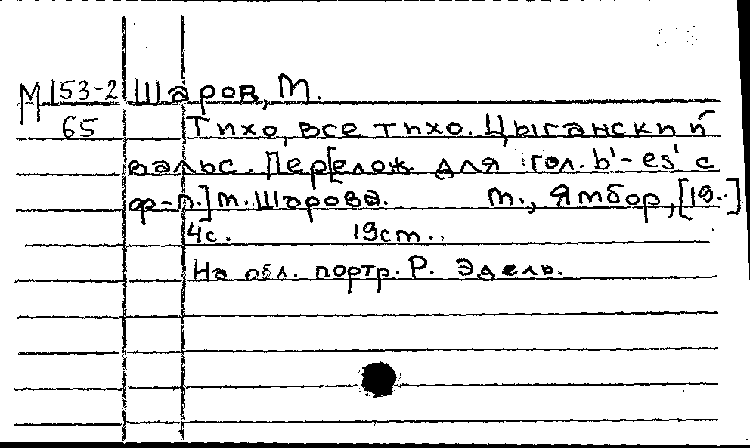 М153-2 Шаров, М.
65 Тихо, все тихо. Цыганский
вальс. Пер[елож. для 1гол. b'-es' с
ф-п.] М. Шарова. М., Ямбор, [19..]
4с. 19см..
На обл. портр. Р. Эдель.